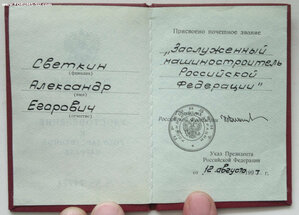 Светкин
(фамилия)
Александр
(имя)
Егорович
(отчество)
Присвоено почетное звание
"Заслуженный
машиностроитель
Российской
Федерации"
Российской Федерации
Указ Президента
Российской Федерации
от 12 августа 1997 г.